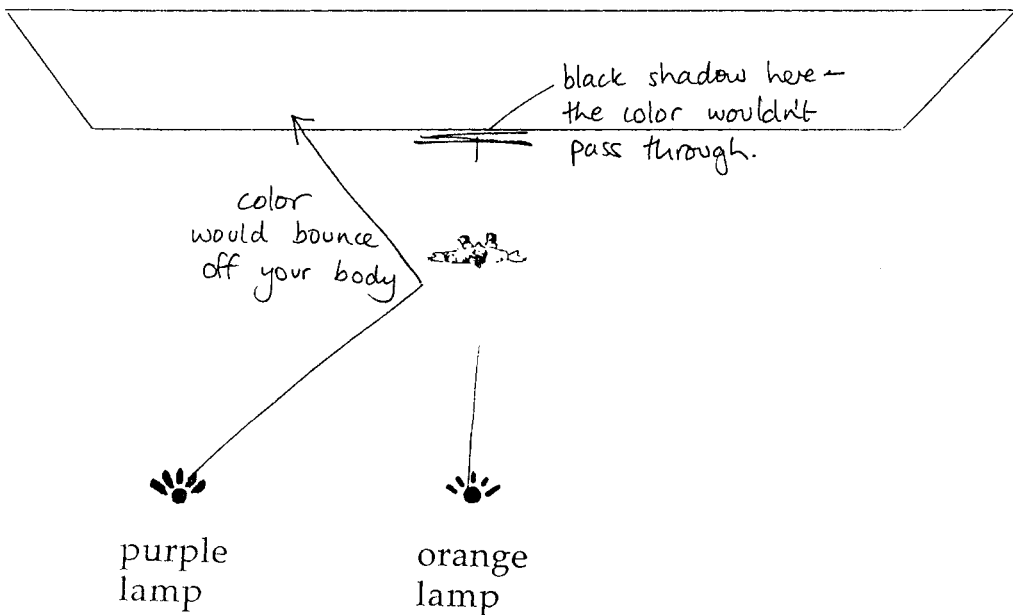 black shadow here –
the color wouldn't
pass through.
color
would bounce
off your body
purple
lamp
orange
lamp